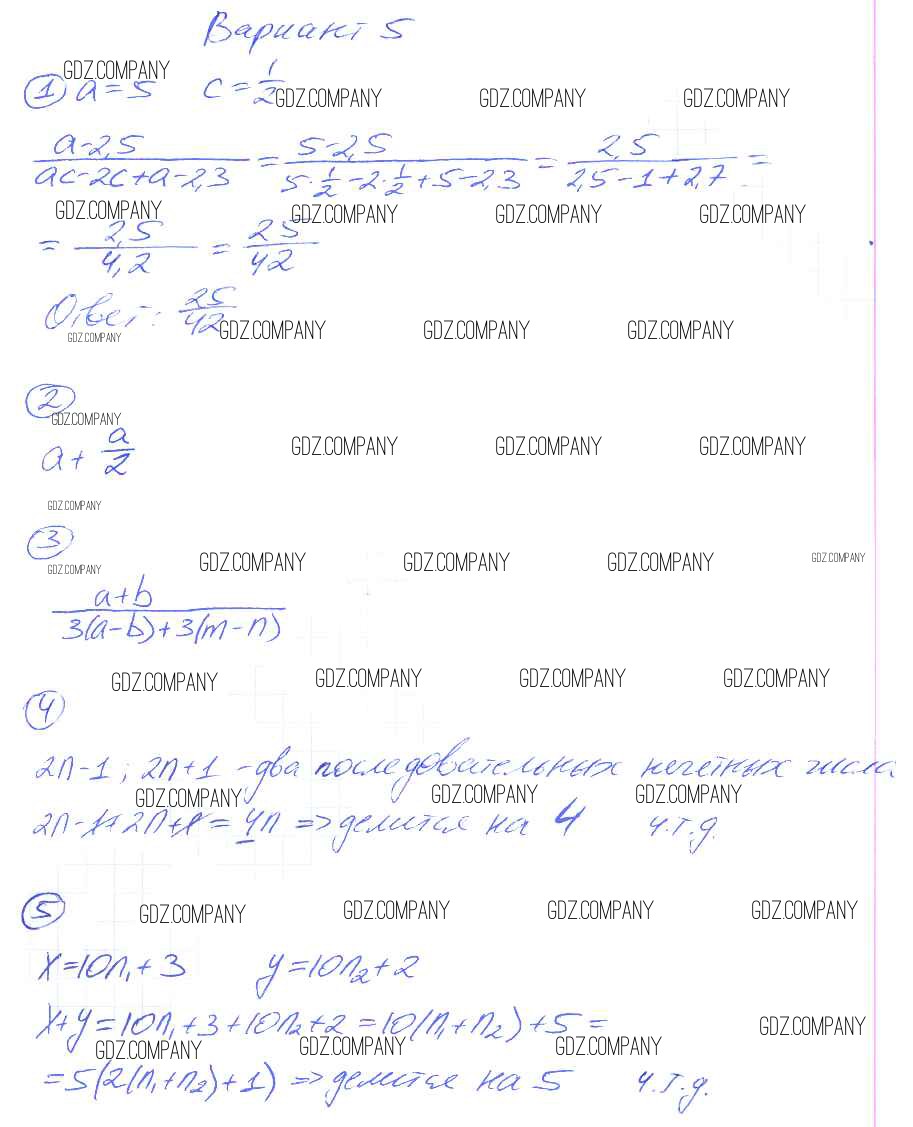 Вариант 5
GDZ.COMPANY
① a = 5 c = 1/2 GDZ.COMPANY GDZ.COMPANY GDZ.COMPANY
(a-2,5)/(ac-2c+a-2,3) = (5-2,5)/(5·1/2-2·1/2+5-2,3) = 2,5/(2,5-1+2,7) =
GDZ.COMPANY GDZ.COMPANY GDZ.COMPANY GDZ.COMPANY
= 2,5/4,2 = 25/42
Ответ: 25/42 GDZ.COMPANY GDZ.COMPANY GDZ.COMPANY
GDZ.COMPANY
②
GDZ.COMPANY
a + a/2 GDZ.COMPANY GDZ.COMPANY GDZ.COMPANY
GDZ.COMPANY
③
GDZ.COMPANY GDZ.COMPANY GDZ.COMPANY GDZ.COMPANY GDZ.COMPANY
(a+b)/(3(a-b)+3(m-n))
GDZ.COMPANY GDZ.COMPANY GDZ.COMPANY GDZ.COMPANY
④
2n-1; 2n+1 - два последовательных нечётных числа
GDZ.COMPANY GDZ.COMPANY GDZ.COMPANY
2n-1+2n+1 = 4n => делится на 4 ч.т.д.
⑤ GDZ.COMPANY GDZ.COMPANY GDZ.COMPANY GDZ.COMPANY
x=10n₁+3 y=10n₂+2
x+y=10n₁+3+10n₂+2=10(n₁+n₂)+5= GDZ.COMPANY
GDZ.COMPANY GDZ.COMPANY GDZ.COMPANY
=5(2(n₁+n₂)+1) => делится на 5 ч.т.д.